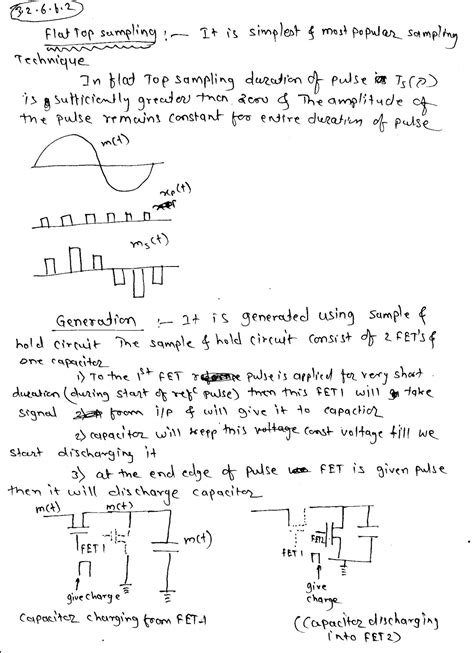 3.2.6.1.2
Flat Top sampling :- It is simplest & most popular sampling
Technique
In flat Top sampling duration of pulse is Ts(P)
is sufficiently greater then zero & The amplitude of
the pulse remains constant for entire duration of pulse
m(t)
xp(t)
ms(t)
Generation :- It is generated using sample &
hold circuit The sample & hold circuit consist of 2 FET's &
one capacitor
1) To the 1st FET pulse is applied for very short
duration (during start of refc pulse) then this FET1 will take
signal from i/p & will give it to capactior
2) capacitor will keep this voltage const voltage till we
start discharging it
3) at the end edge of pulse FET is given pulse
then it will discharge capacitor
m(t) m(t)
FET 1 m(t) FET 1 FET2
give charge give
charge
Capacitor charging from FET-1 (Capacitor discharging
into FET2)